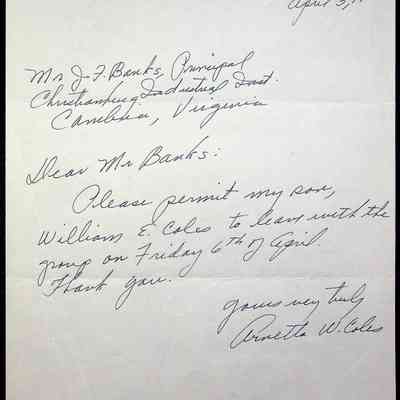 April 3,
Mr J. F. Banks, Principal
Christiansburg Industrial Inst.
Cambria, Virginia
Dear Mr Banks:
Please permit my son,
William E. Coles to leave with the
group on Friday 6th of April.
Thank you.
Yours very truly
Arnetta W. Coles